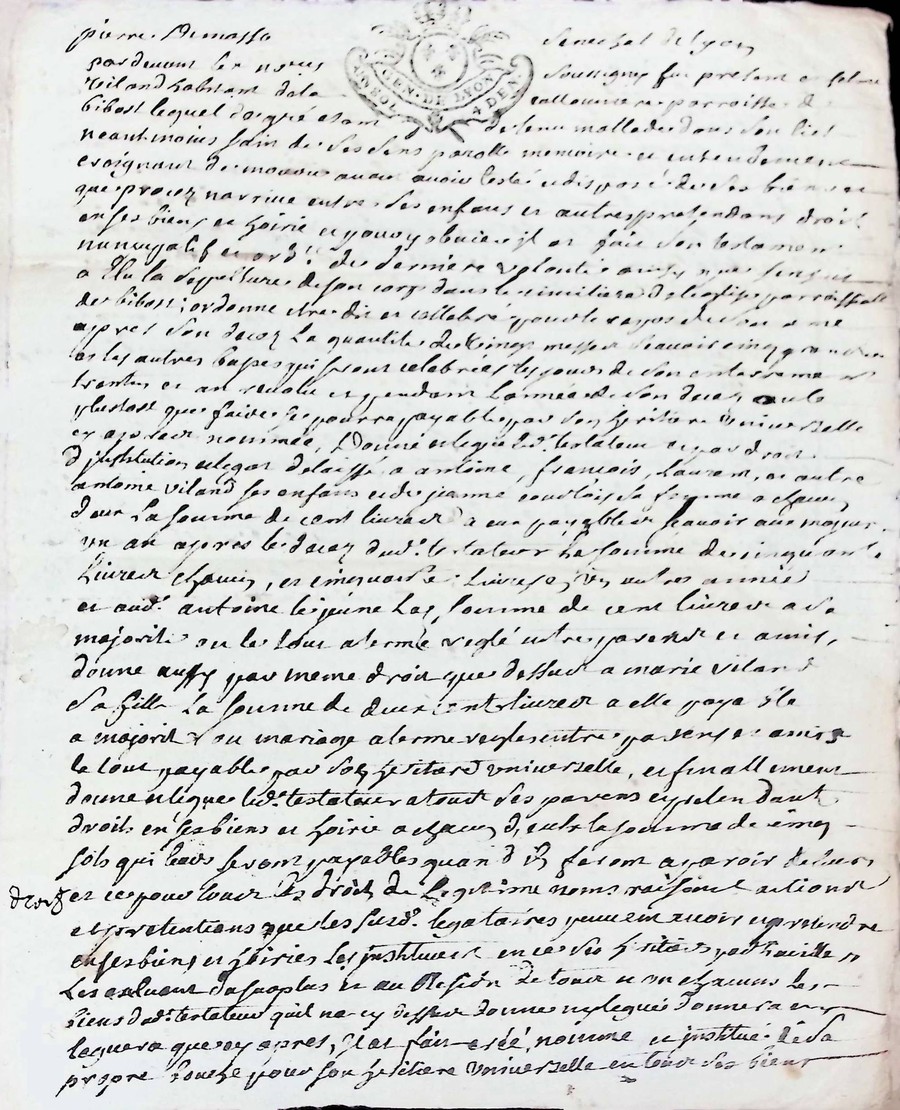 pierre Demassa Senechal de Lyon
GEN. DE LYON
4 DEN.
pardevant les no.res soussignes fut present
viland habitant de la parroisse de
bibost lequel de gré estant detenu mallade dans son lict
neantmoins sain de ses sens parolle memoire et entendement
craignant de mourir avant avoir testé et disposé de ses biens et
que procez narrive entre ses enfans et autres pretendans droit
en ses biens et hoirie et pour y obvier il a fait son testament
nuncupatif et ord.re de derniere volonté ainsy que sensuit
a Elu la sepulture de son corps dans le cimetiere de leglise parroissialle
de bibost; ordonne etre dit et cellebré pour le repos de son ame
apres son decez la quantité de vingt messes scavoir cinq grandes
et les autres basses qui seront celebrées les jours de son enterrement
trentin et an revolu et pendant lannée de son decez ou le
plustost que faire se pourra payable par son heritiere universelle
cy apres nommée, Donne et legue led. testateur et par droit
d'institution et legat delaisse a antoine, francois, Laurent, et autre
antoine viland ses enfans et de jeanne sa femme a chacun
deux La somme de cent livres a eux payables scavoir aux majeurs
un an apres le decez dud. testateur La somme de cinquante
Livres chacun, et cinquante Livres autres années
et aud. antoine le jeune La somme de cent livres a sa
majorité ou le tout a terme reglé entre parens et amis,
donne aussy par meme droit que dessus a marie viland
sa fille La somme de deux cent livres a elle payable
a majorité ou mariage a terme reglé entre parens et amis
le tout payable par son heritiere universelle, et finallement
donne et legue led. testateur a tous ses parens et pretendant
droits en ses biens et hoirie a chacun deux la somme de cinq
sols qui leurs seront payables quand ils feront aparoir de leurs
droits et ce pour tous les droits de Legitime noms raisons actions
et pretentions que les susd. legataires peuvent avoir et pretendre
en ses biens et hoiries Les instituant en ce ses heritiers particuliers
Les excluant du surplus et au Residu de tous et un chacuns les
biens dud. testateur quil na cy dessus donné ny legué donnera ny
leguera que cy apres, Il a fait créé, nommé et institué de sa
propre bouche pour son heritiere universelle en tous ses biens